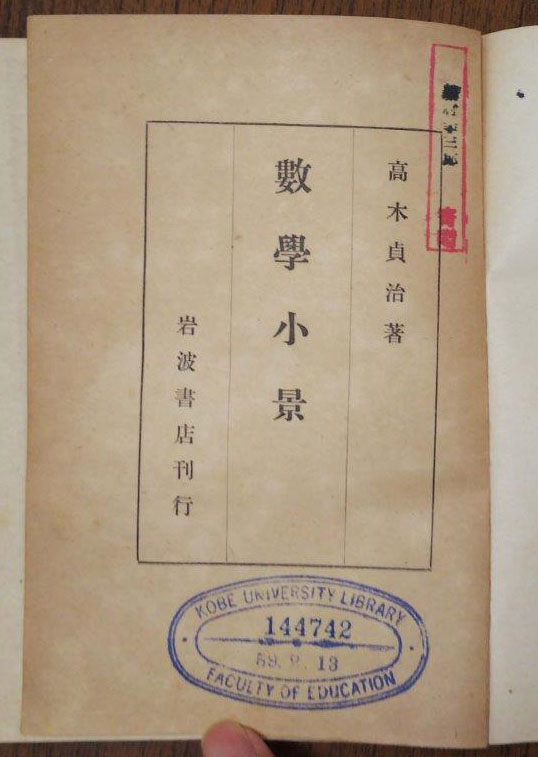 高木貞治著
數學小景
岩波書店刊行
KOBE UNIVERSITY LIBRARY
144742
FACULTY OF EDUCATION